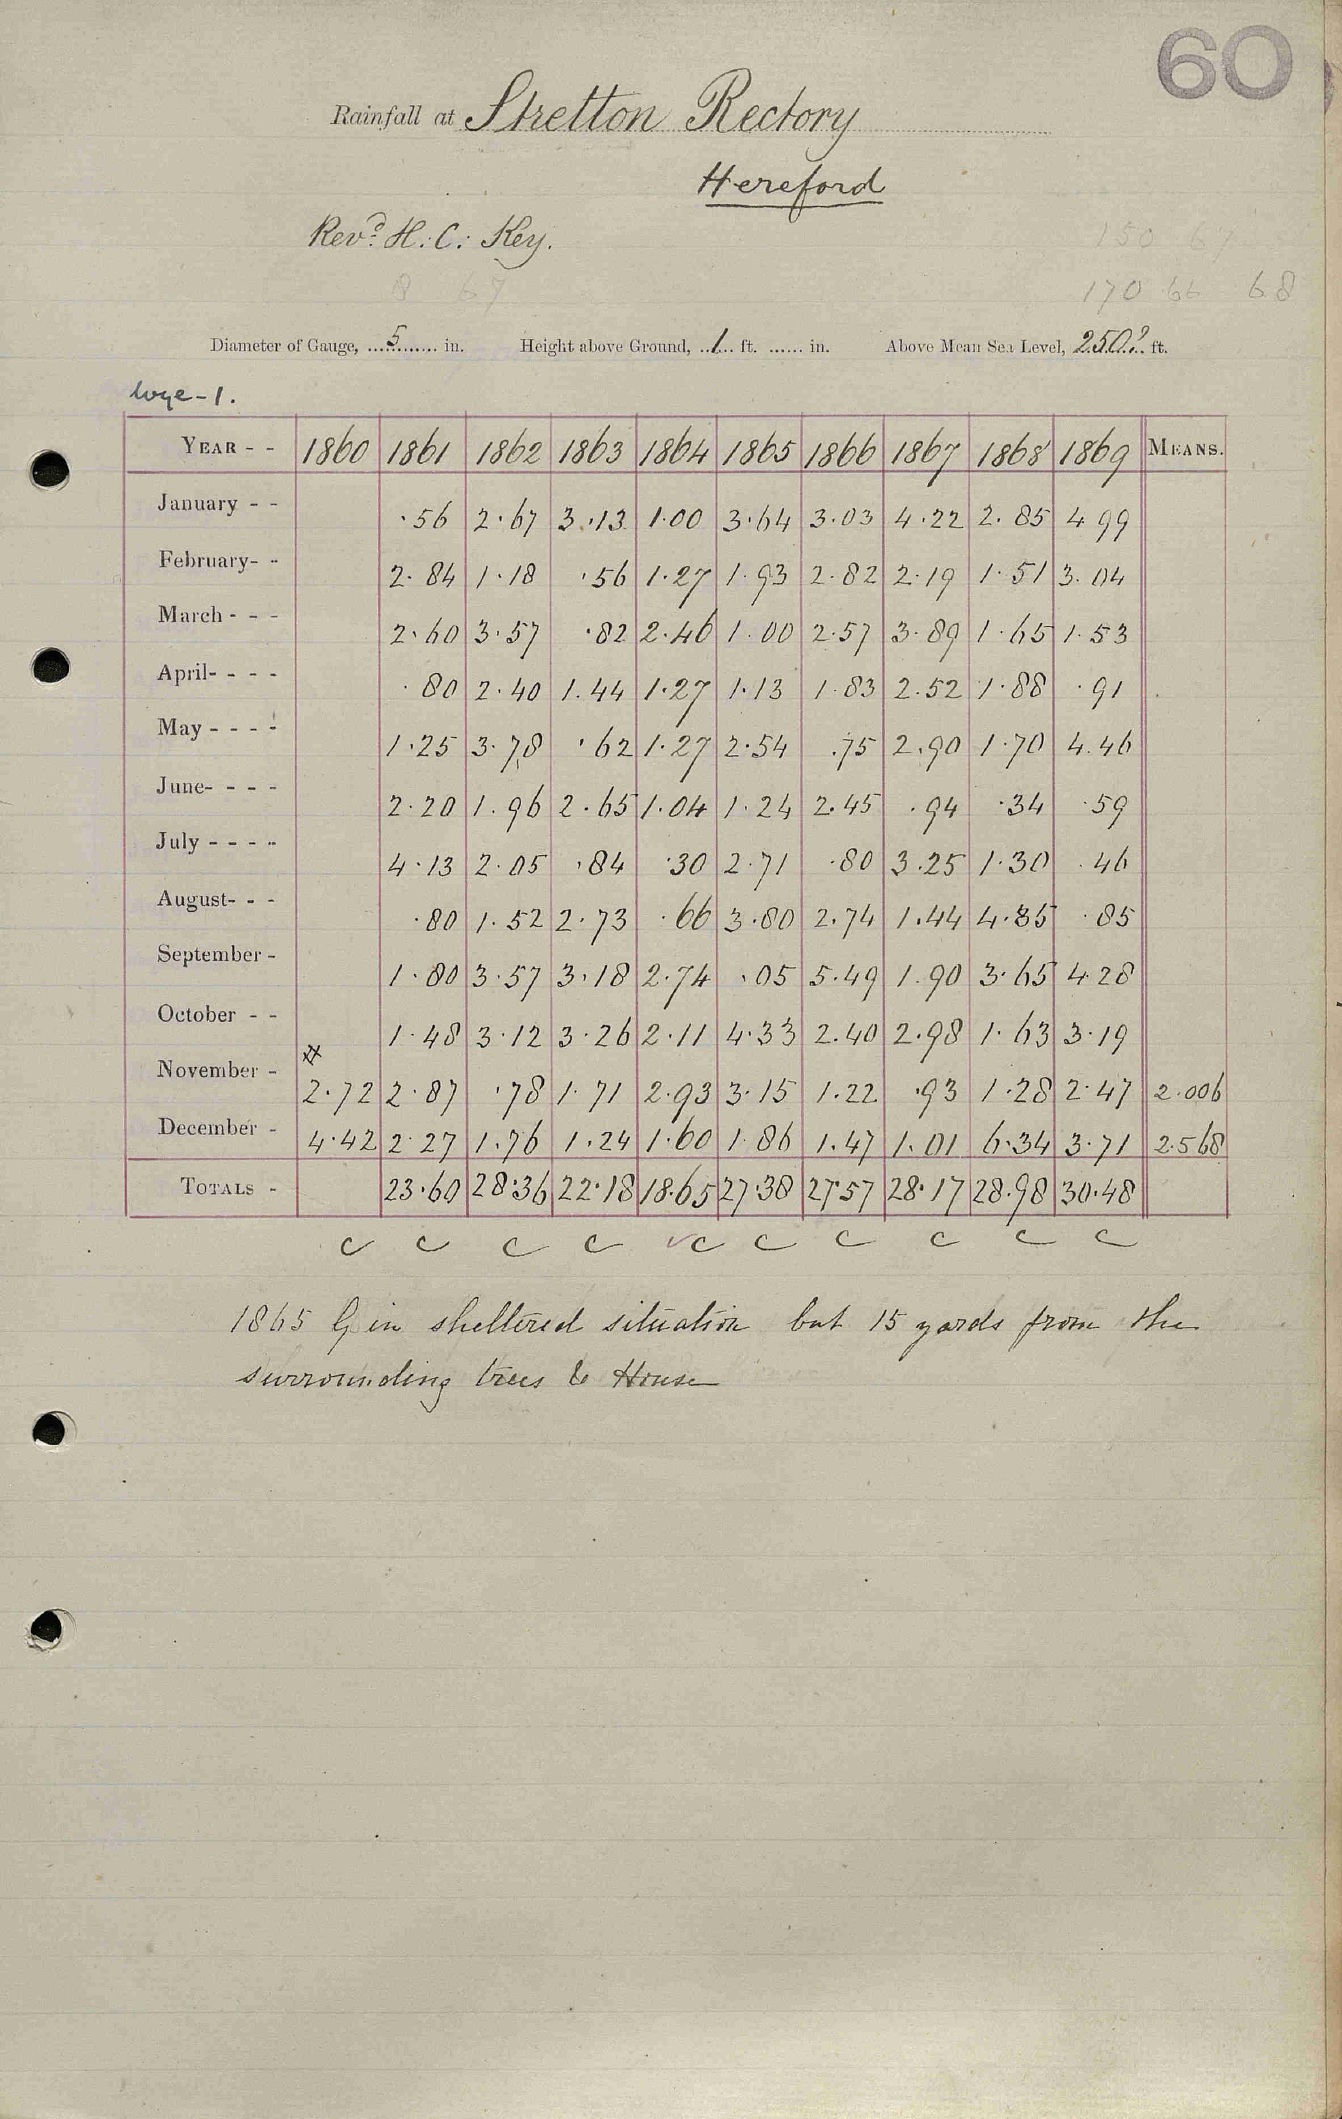 60
Rainfall at Stretton Rectory
Hereford
Revd. H. C. Key.
150 67
8 67 170 66 68
Diameter of Gauge, 5 in. Height above Ground, 1 ft. ...... in. Above Mean Sea Level, 250? ft.
Wye - 1.
YEAR - - 1860 1861 1862 1863 1864 1865 1866 1867 1868 1869 MEANS.
January - - ·56 2·67 3·13 1·00 3·64 3·03 4·22 2·85 4 99
February- - 2·84 1·18 ·56 1·27 1·93 2·82 2·19 1·51 3·04
March - - - 2·60 3·57 ·82 2·46 1·00 2·57 3·89 1·65 1·53
April- - - - ·80 2·40 1·44 1·27 1·13 1·83 2·52 1·88 ·91
May - - - - 1·25 3·78 ·62 1·27 2·54 ·75 2·90 1·70 4·46
June- - - - 2·20 1·96 2·65 1·04 1·24 2·45 ·94 ·34 ·59
July - - - - 4·13 2·05 ·84 ·30 2·71 ·80 3·25 1·30 ·46
August- - - ·80 1·52 2·73 ·66 3·80 2·74 1·44 4·85 ·85
September - 1·80 3·57 3·18 2·74 ·05 5·49 1·90 3·65 4·28
October - - 1·48 3·12 3·26 2·11 4·33 2·40 2·98 1·63 3·19
November - 2·72 2·87 ·78 1·71 2·93 3·15 1·22 ·93 1·28 2·47 2·006
December - 4·42 2·27 1·76 1·24 1·60 1·86 1·47 1·01 6·34 3·71 2·568
TOTALS - 23·60 28·36 22·18 18·65 27·38 27·57 28·17 28·98 30·48
c c c c c c c c c c
1865 G in sheltered situation but 15 yards from the
surrounding trees & House